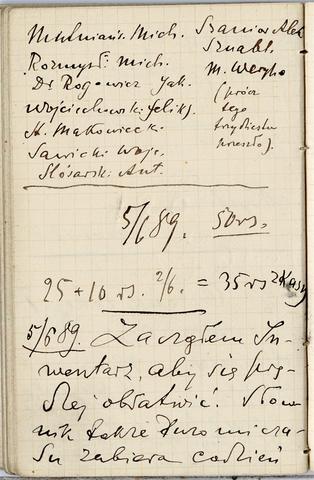 Mulniań. Mich.
Rozmysł. Mich.
Dr Rogowicz Jak.
Wojciechowski Felik).
A. Makowieck.
Sawicki Wojc.
Ślósarski Ant.
Szaniaw Alek
Sznabl.
M. Weryho
(prócz
tego
trzydziestu
przeszło).
5/6 89. 50 rs.
25 + 10 rs. 2/6. = 35 rs z Kasy
5/6 89. Zacząłem In-
wentarz, aby się prę-
dzej obłatwić. Słow-
nik także dużo mi cza-
su zabiera codzień